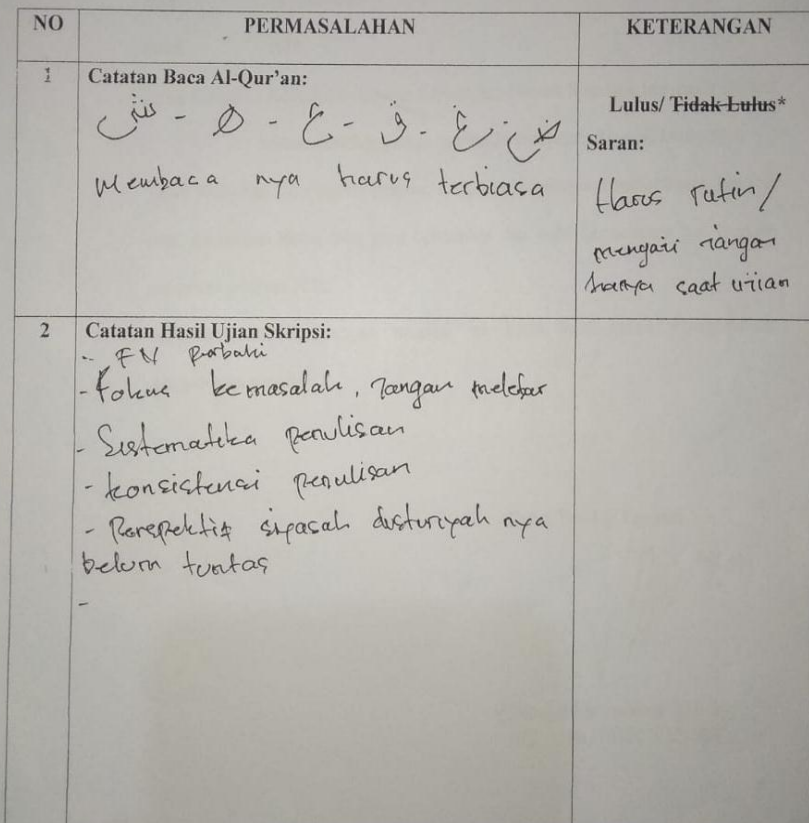 NO PERMASALAHAN KETERANGAN
1 Catatan Baca Al-Qur'an:
ش - ه - ع - ق - غ - ض
Membaca nya harus terbiasa
Lulus/ Tidak Lulus*
Saran:
Harus rutin/
mengaji jangan
hanya saat ujian
2 Catatan Hasil Ujian Skripsi:
- FN perbaiki
- Fokus kemasalah, jangan melebar
- Sistematika penulisan
- konsistensi penulisan
- Perspektif siyasah dusturiyah nya
belum tuntas
-